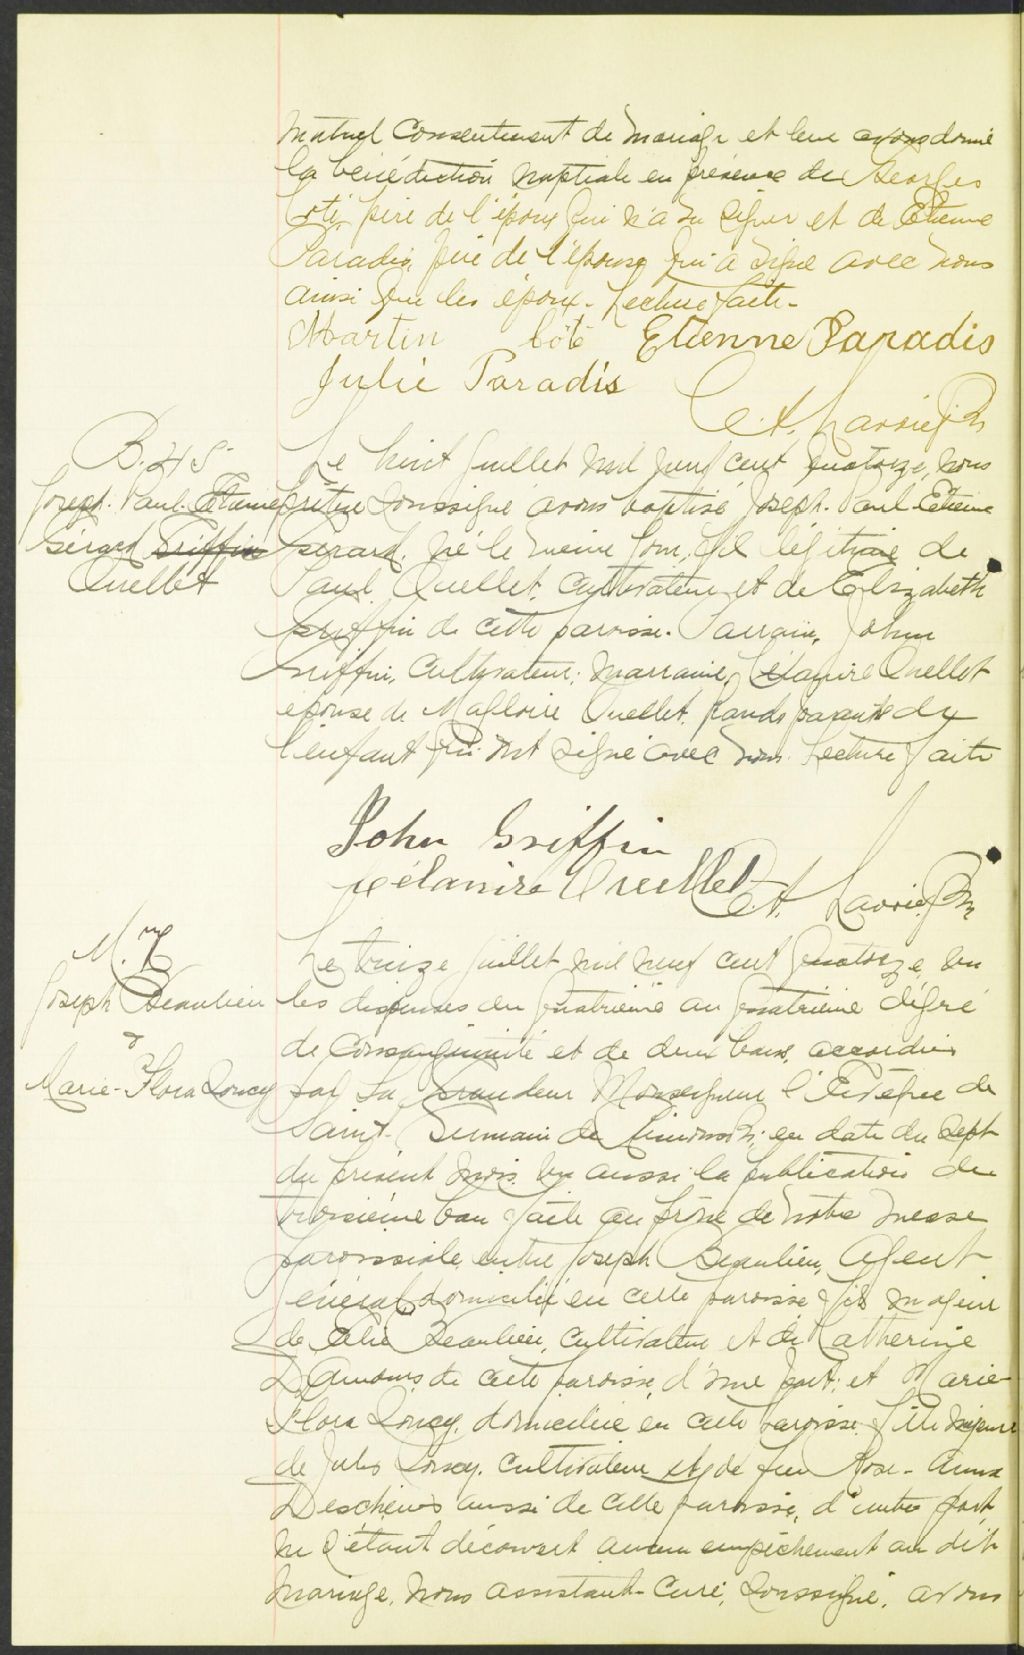 mutuel consentement de mariage et leur avons donné
la bénédiction nuptiale en présence de Georges
Coté, père de l'époux qui n'a su signer et de Etienne
Paradis, père de l'épouse qui a signé avec nous
ainsi que les époux. Lecture faite.
Martin Coté Etienne Paradis
Julie Paradis
B. 45
Joseph. Paul. Etienne
Gérard Griffin
Ouellet
Le huit juillet mil neuf cent quatorze, nous
prêtre soussigné avons baptisé Joseph. Paul Etienne
Gérard. né le même jour, fils légitime de
Paul Ouellet, cultivateur et de Elizabeth
Griffin de cette paroisse. Parrain, John
Griffin, cultivateur; marraine, Ouellet
épouse de Magloire Ouellet, grands parents de
l'enfant qui ont signé avec nous. Lecture faite
John Griffin
Ouellet
M. 7
Joseph Beaulieu
&
Marie-Flora Soucy
Le treize juillet mil neuf cent quatorze, vu
les dispenses du quatrième au quatrième dégré
de consanguinité et de deux bans, accordées
par Sa Grandeur Monseigneur l'Evêque de
Saint-Germain de Rimouski, en date du sept
du présent mois. vu aussi la publication du
troisième ban faite au prône de notre messe
paroissiale, entre Joseph Beaulieu, Agent
général, domicilié en cette paroisse fils majeur
de Elie Beaulieu, cultivateur et de Catherine
D'Amours de cette paroisse, d'une part; et Marie-
Flora Soucy, domiciliée en cette paroisse, fille majeure
de Jules Soucy. cultivateur et de feu Rose-Anna
Deschènes aussi de cette paroisse, d'autre part
ne s'étant découvert aucun empêchement au dit
mariage, nous assistant-curé, soussigné, avons